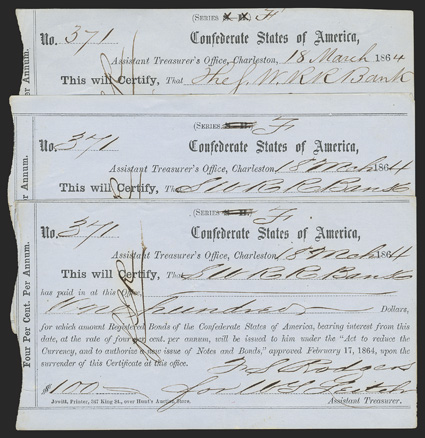 (Series X X) F
No. 371 Confederate States of America,
Assistant Treasurer's Office, Charleston, 18 March 1864
This will Certify, That The S. W. R R Bank
er Annum.
(Series F
No. 371 Confederate States of America,
Assistant Treasurer's Office, Charleston 18 Mch 1864
This will Certify, Tha S W R R Bank
er Annum.
(Series F
No. 371 Confederate States of America,
Assistant Treasurer's Office, Charleston, 18 Mch 1864
This will Certify, Tha S W R R Bank
has paid in at this Office
hundred Dollars,
for which amount Registered Bonds of the Confederate States of America, bearing interest from this
date, at the rate of four per cent. per annum, will be issued to him under the "Act to reduce the
Currency, and to authorize a new issue of Notes and Bonds," approved February 17, 1864, upon the
surrender of this Certificate at this office.
Rodgers
$100
for
Jowitt, Printer, 247 King St., over Hunt's Auction Store.
Assistant Treasurer.
Four Per Cent. Per Annum.